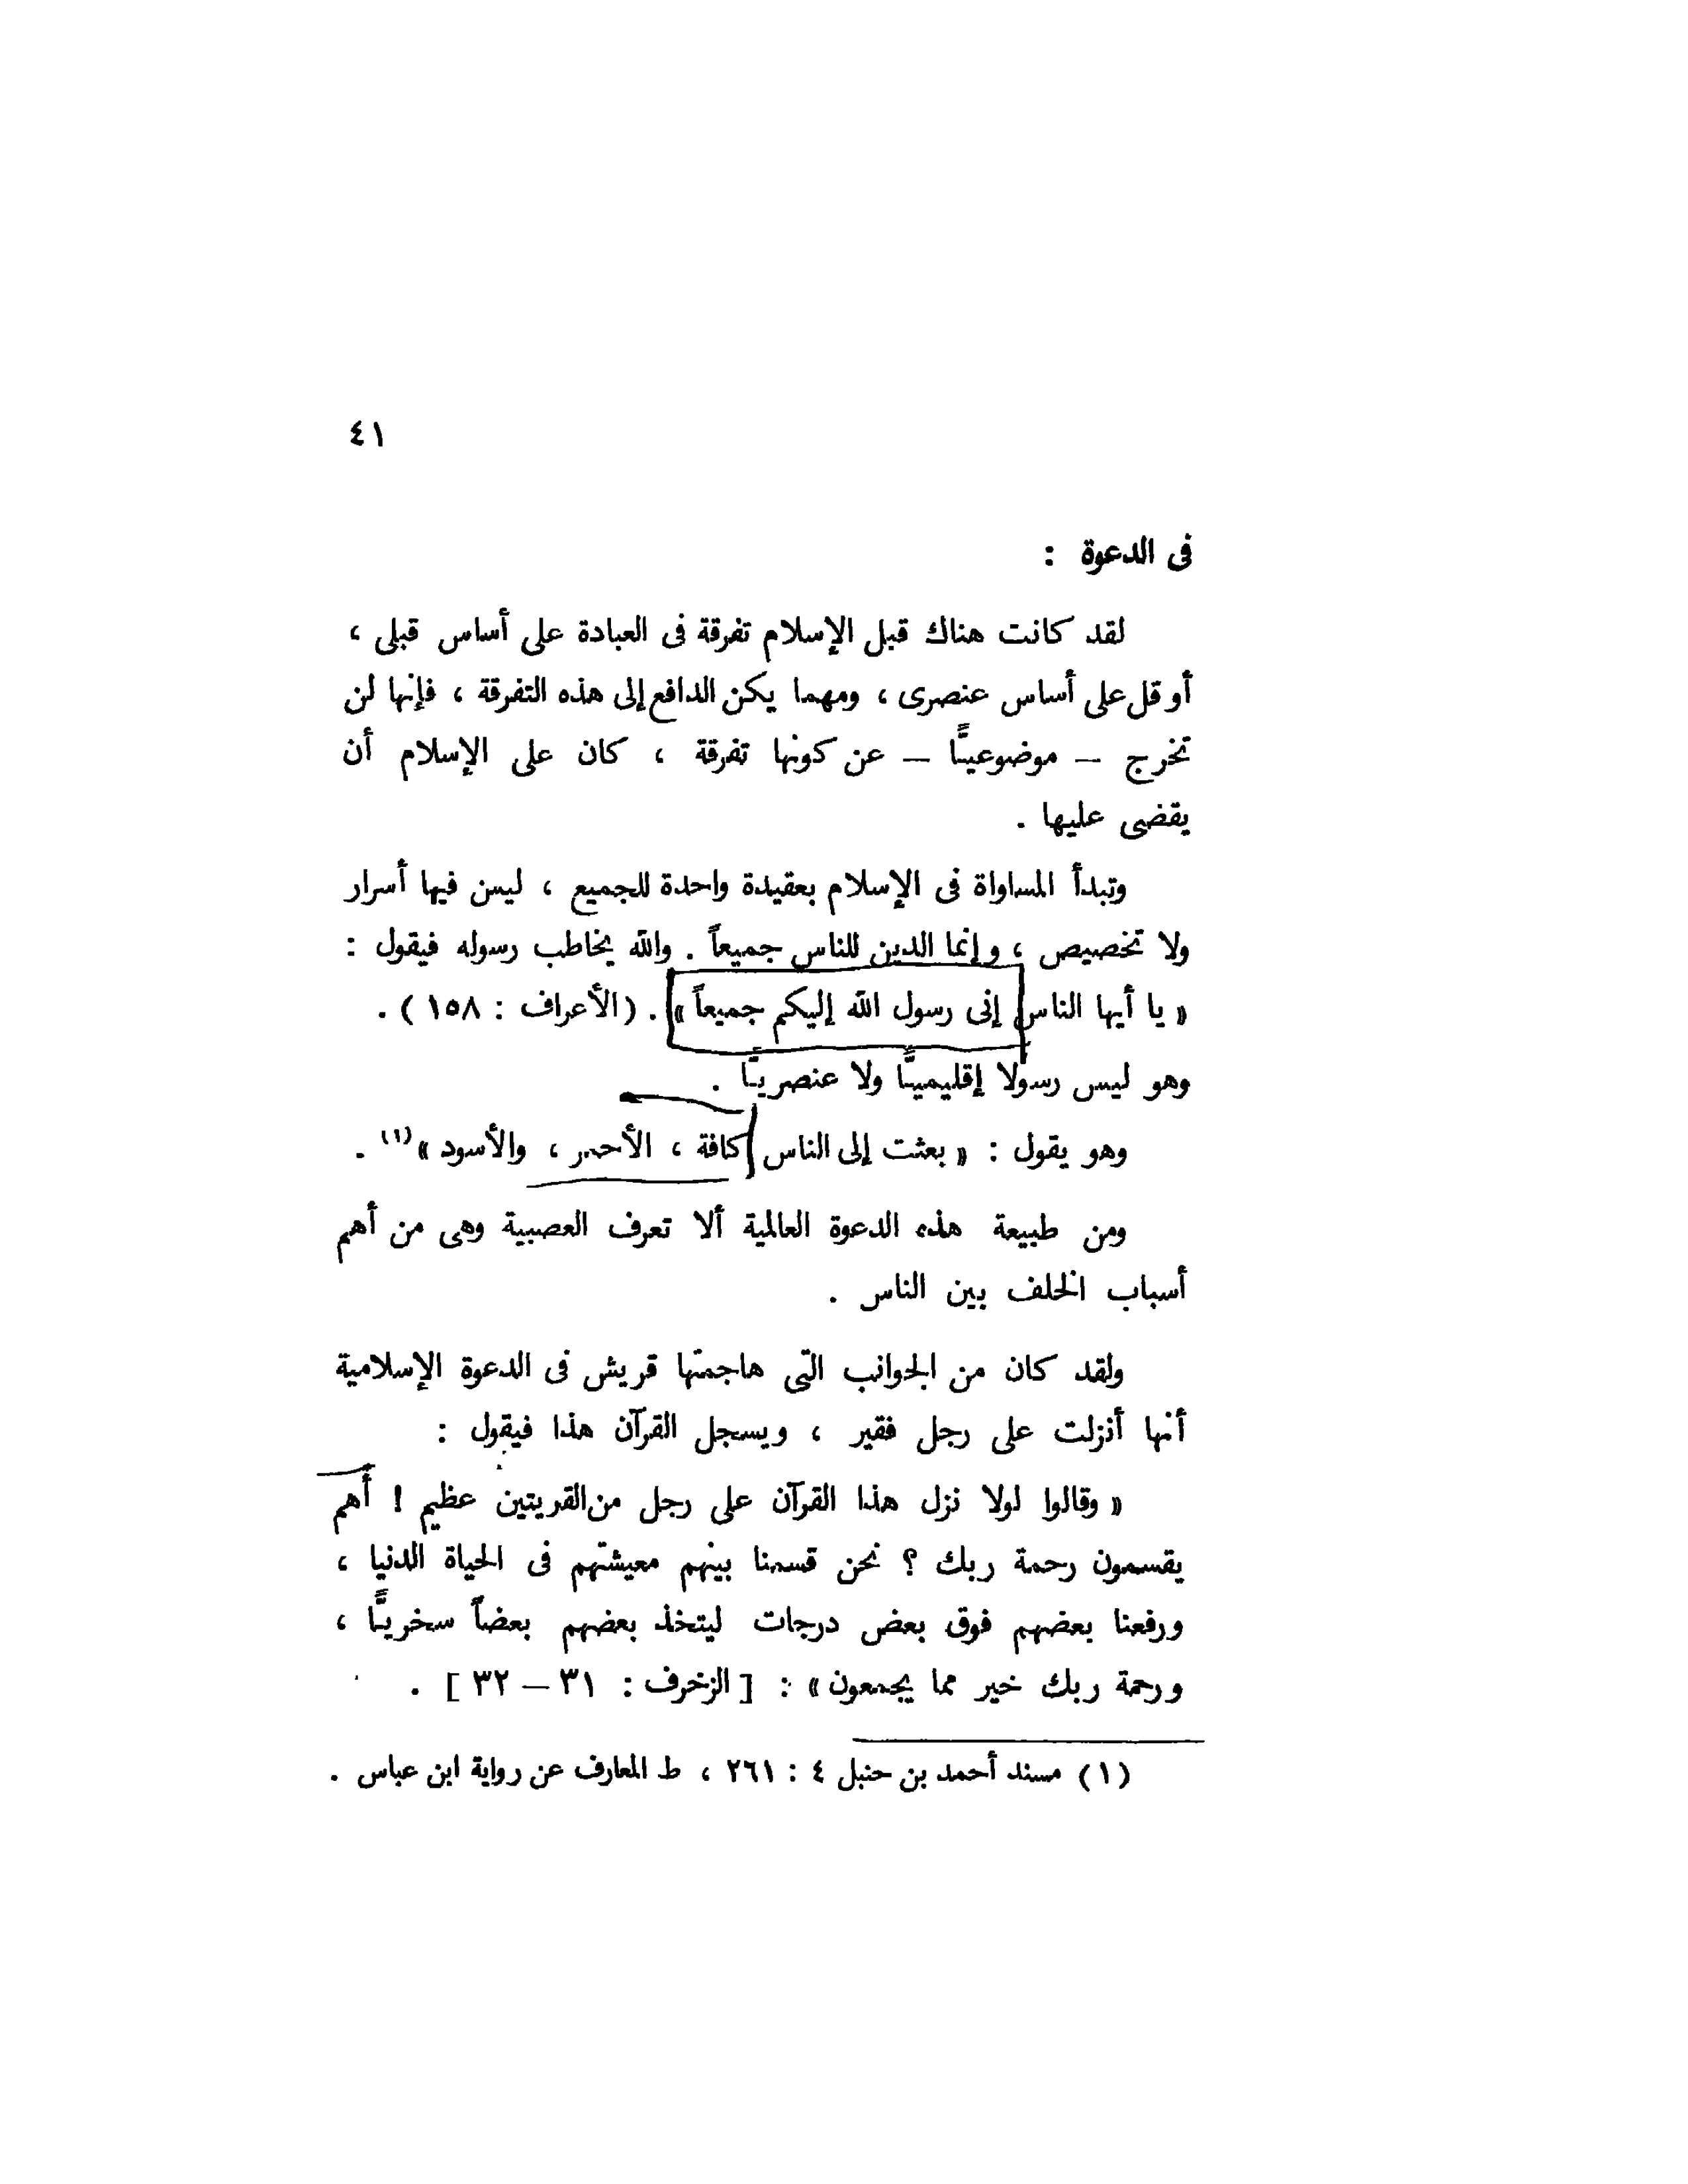 ٤١
فى الدعوة :
لقد كانت هناك قبل الإسلام تفرقة فى العبادة على أساس قبلى ،
أو قل على أساس عنصرى ، ومهما يكن الدافع إلى هذه التفرقة ، فإنها لن
تخرج – موضوعيًّا – عن كونها تفرقة ، كان على الإسلام أن
يقضى عليها .
وتبدأ المساواة فى الإسلام بعقيدة واحدة للجميع ، ليس فيها أسرار
ولا تخصيص ، وإنما الدين للناس جميعاً . والله يخاطب رسوله فيقول :
« يا أيها الناس إنى رسول الله إليكم جميعاً » . ( الأعراف : ١٥٨ ) .
وهو ليس رسولا إقليميًّا ولا عنصريًّا .
وهو يقول : « بعثت إلى الناس كافة ، الأحمر ، والأسود »(١) .
ومن طبيعة هذه الدعوة العالمية ألا تعرف العصبية وهى من أهم
أسباب الخلف بين الناس .
ولقد كان من الجوانب التى هاجمتها قريش فى الدعوة الإسلامية
أنها أنزلت على رجل فقير ، ويسجل القرآن هذا فيقول :
« وقالوا لولا نزل هذا القرآن على رجل من القريتين عظيم ! أهم
يقسمون رحمة ربك ؟ نحن قسمنا بينهم معيشتهم فى الحياة الدنيا ،
ورفعنا بعضهم فوق بعض درجات ليتخذ بعضهم بعضاً سخريًّا ،
ورحمة ربك خير مما يجمعون » : [ الزخرف : ٣١ – ٣٢ ] .
(١) مسند أحمد بن حنبل ٤ : ٢٦١ ، ط المعارف عن رواية ابن عباس .